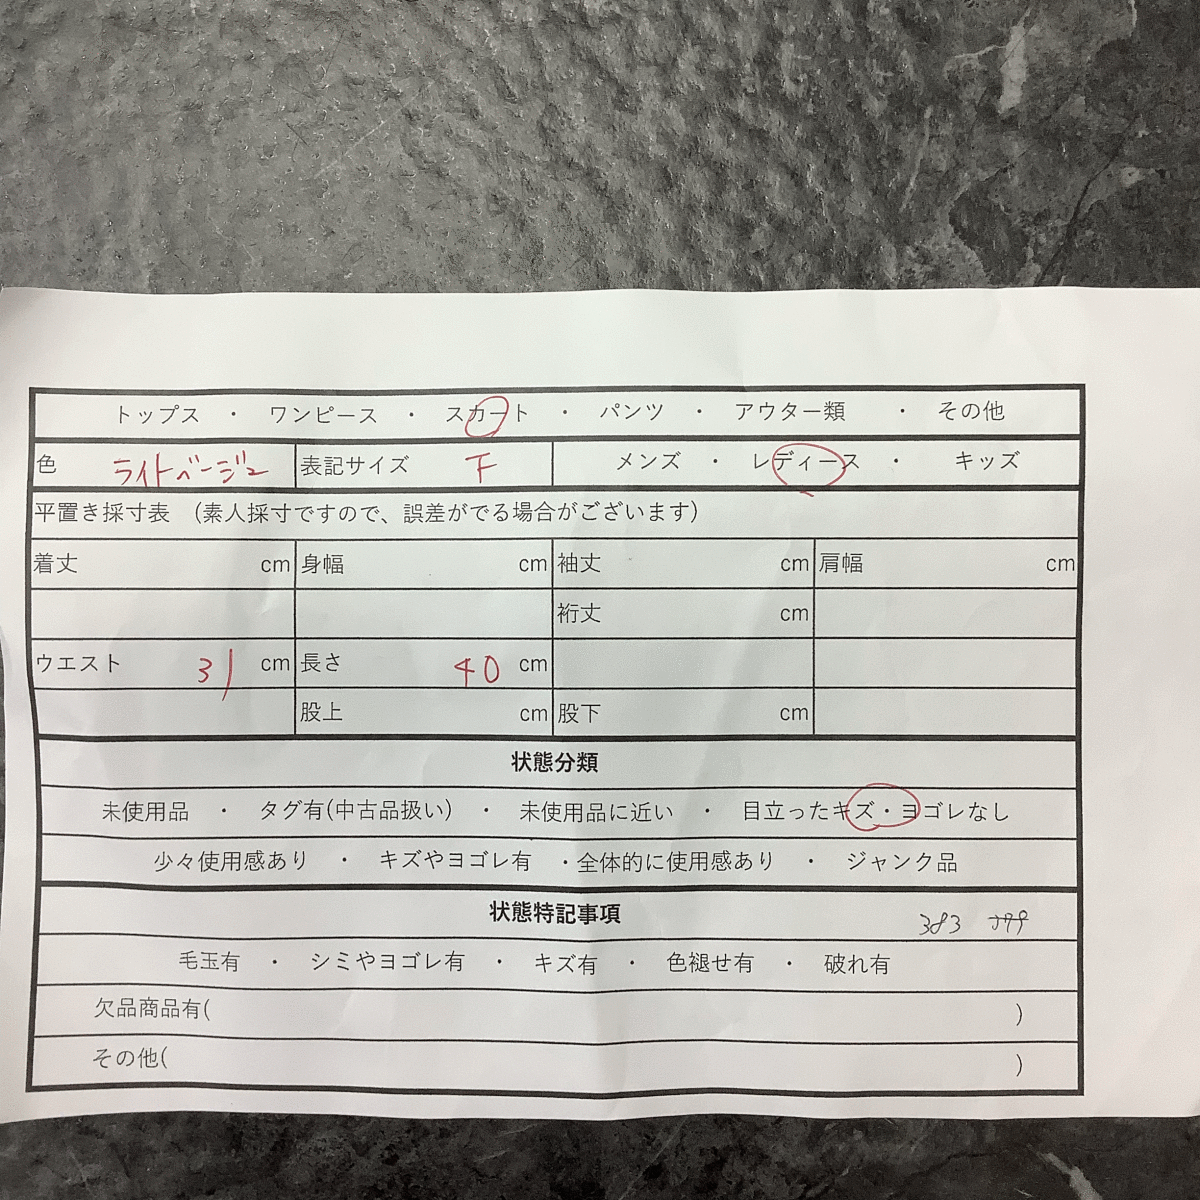 トップス ・ ワンピース ・ スカート ・ パンツ ・ アウター類 ・ その他
色 ライトベージュ 表記サイズ F メンズ ・ レディース ・ キッズ
平置き採寸表 (素人採寸ですので、誤差がでる場合がございます)
着丈 cm 身幅 cm 袖丈 cm 肩幅 cm
裄丈 cm
ウエスト 31 cm 長さ 40 cm
股上 cm 股下 cm
状態分類
未使用品 ・ タグ有(中古品扱い) ・ 未使用品に近い ・ 目立ったキズ・ヨゴレなし
少々使用感あり ・ キズやヨゴレ有 ・全体的に使用感あり ・ ジャンク品
状態特記事項 383
毛玉有 ・ シミやヨゴレ有 ・ キズ有 ・ 色褪せ有 ・ 破れ有
欠品商品有( )
その他( )